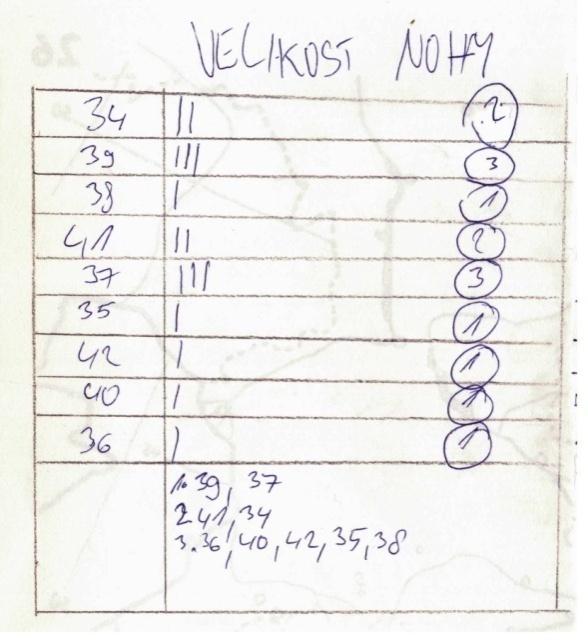 VELIKOST NOHY
34 || 2
39 ||| 3
38 | 1
41 || 2
37 ||| 3
35 | 1
42 | 1
40 | 1
36 | 1
1. 39, 37
2. 41, 34
3. 36, 40, 42, 35, 38